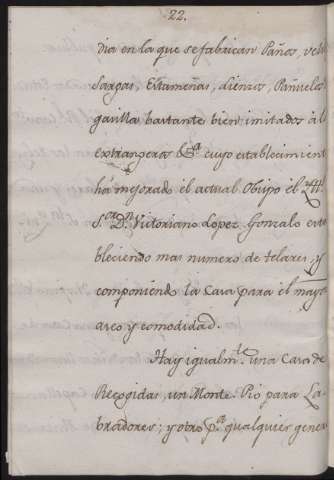 22.
dia en la que se fabrican Paños, vel
Sargas, Estameñas, Lienzos, Pañuelos
gavilla bastante bien imitados à l
extrangeros &a cuyo establecimient
ha mejorado el actual Obispo el
S.or Dn. Victoriano Lopez Gonzalo esta
bleciendo mas numero de telares, y
componiendo la Casa para el mayor
aseo y comodidad.
Hay igualm.te una Casa de
Recogidas, un Monte-Pio para La
bradores; y otro p.a qualquier gene